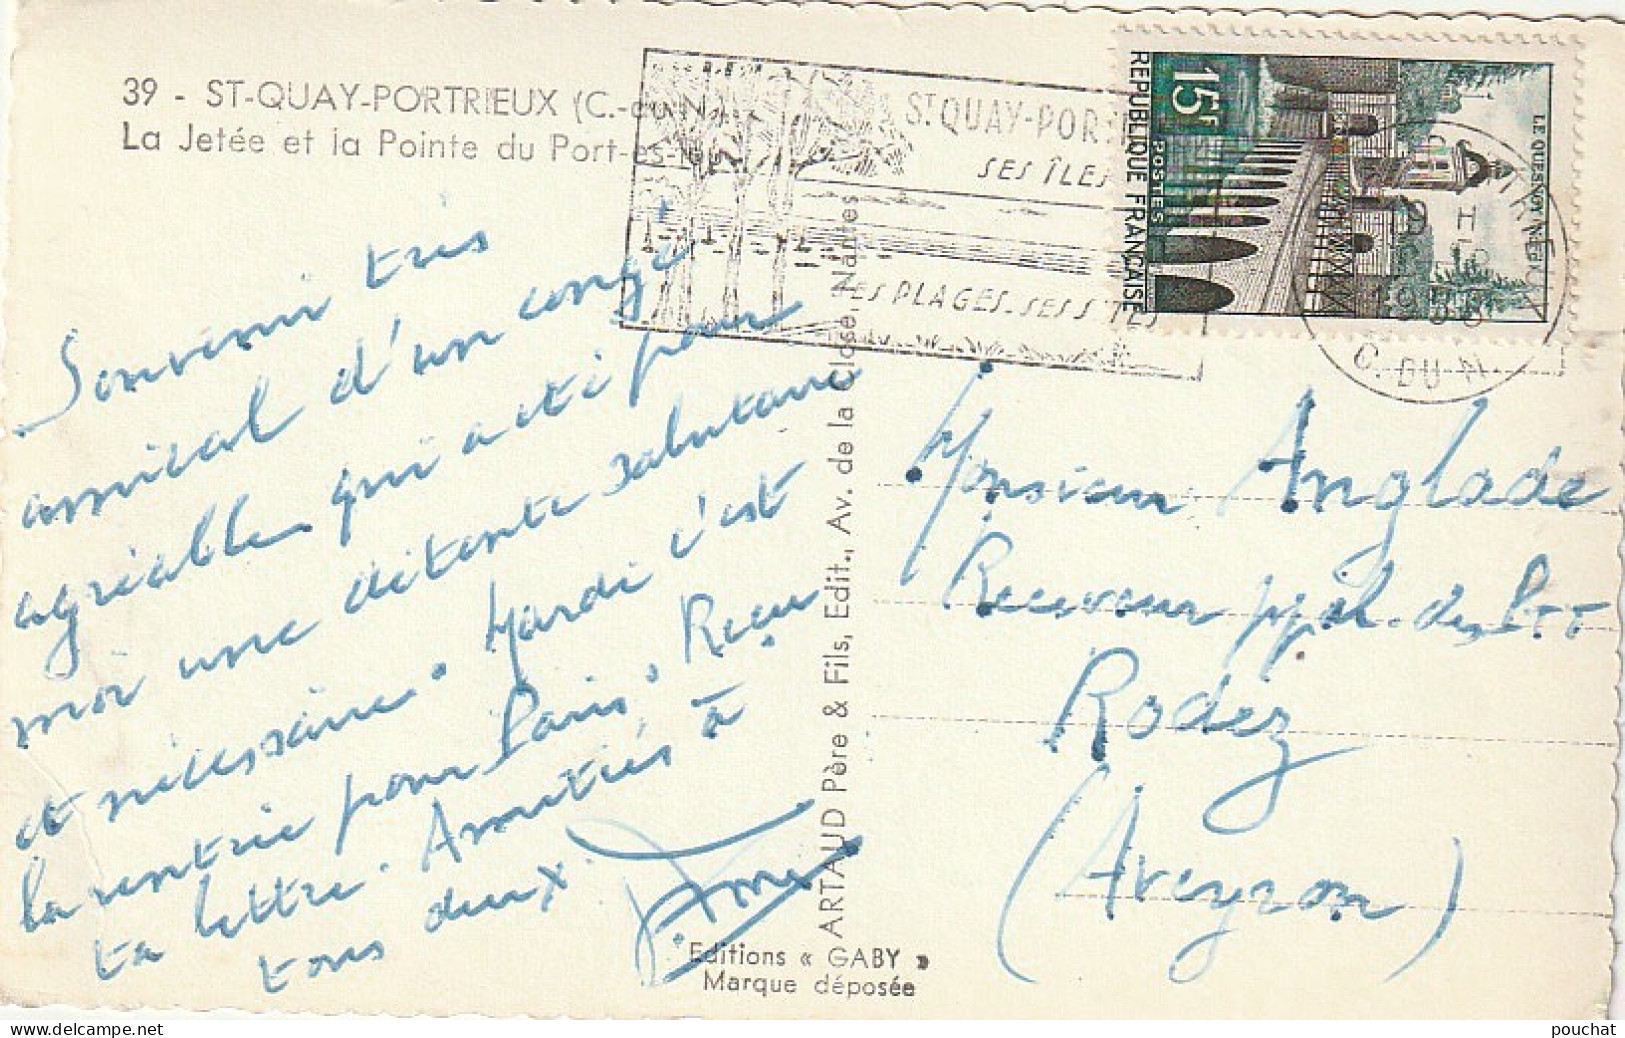 39 - ST-QUAY-PORTRIEUX (C.-du-N.)
La Jetée et la Pointe du Port-es-
ST QUAY-POR
SES ÎLES
SES PLAGES. SES SITES
15F
REPUBLIQUE FRANÇAISE
POSTES
LE QUESNOY (NEGRE
C. DU N.
Souvenir très
amical d'un congé
agréable qui a été pour
moi une détente salutaire
et nécessaire. Mardi c'est
la rentrée pour Paris. Reçu
ta lettre. Amitiés à
tous deux.
ARTAUD Père & Fils, Edit., Av. de la Close, Nantes
Monsieur Anglade
Receveur ppal. des P.T.T
Rodez
(Aveyron)
Editions « GABY »
Marque déposée
delcampe.net
pouchat